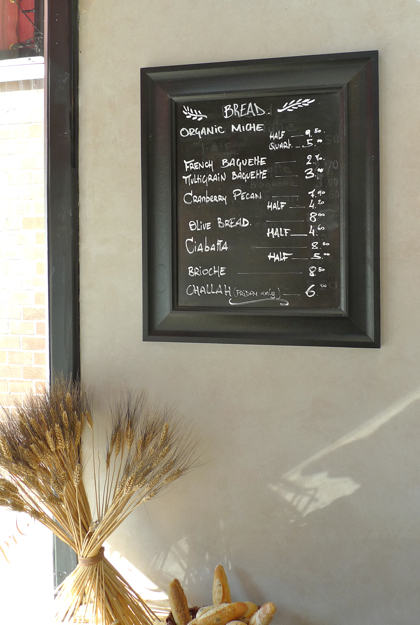 BREAD
ORGANIC MICHE
HALF 9.50
QUART. 5.00
FRENCH BAGUETTE 2.90
MULTIGRAIN BAGUETTE 3.90
CRANBERRY PECAN 7.90
HALF 4.20
OLIVE BREAD. 8.00
HALF 4.60
CIABATTA 8.50
HALF 5.00
BRIOCHE 8.50
CHALLAH (FRIDAY only) 6.00